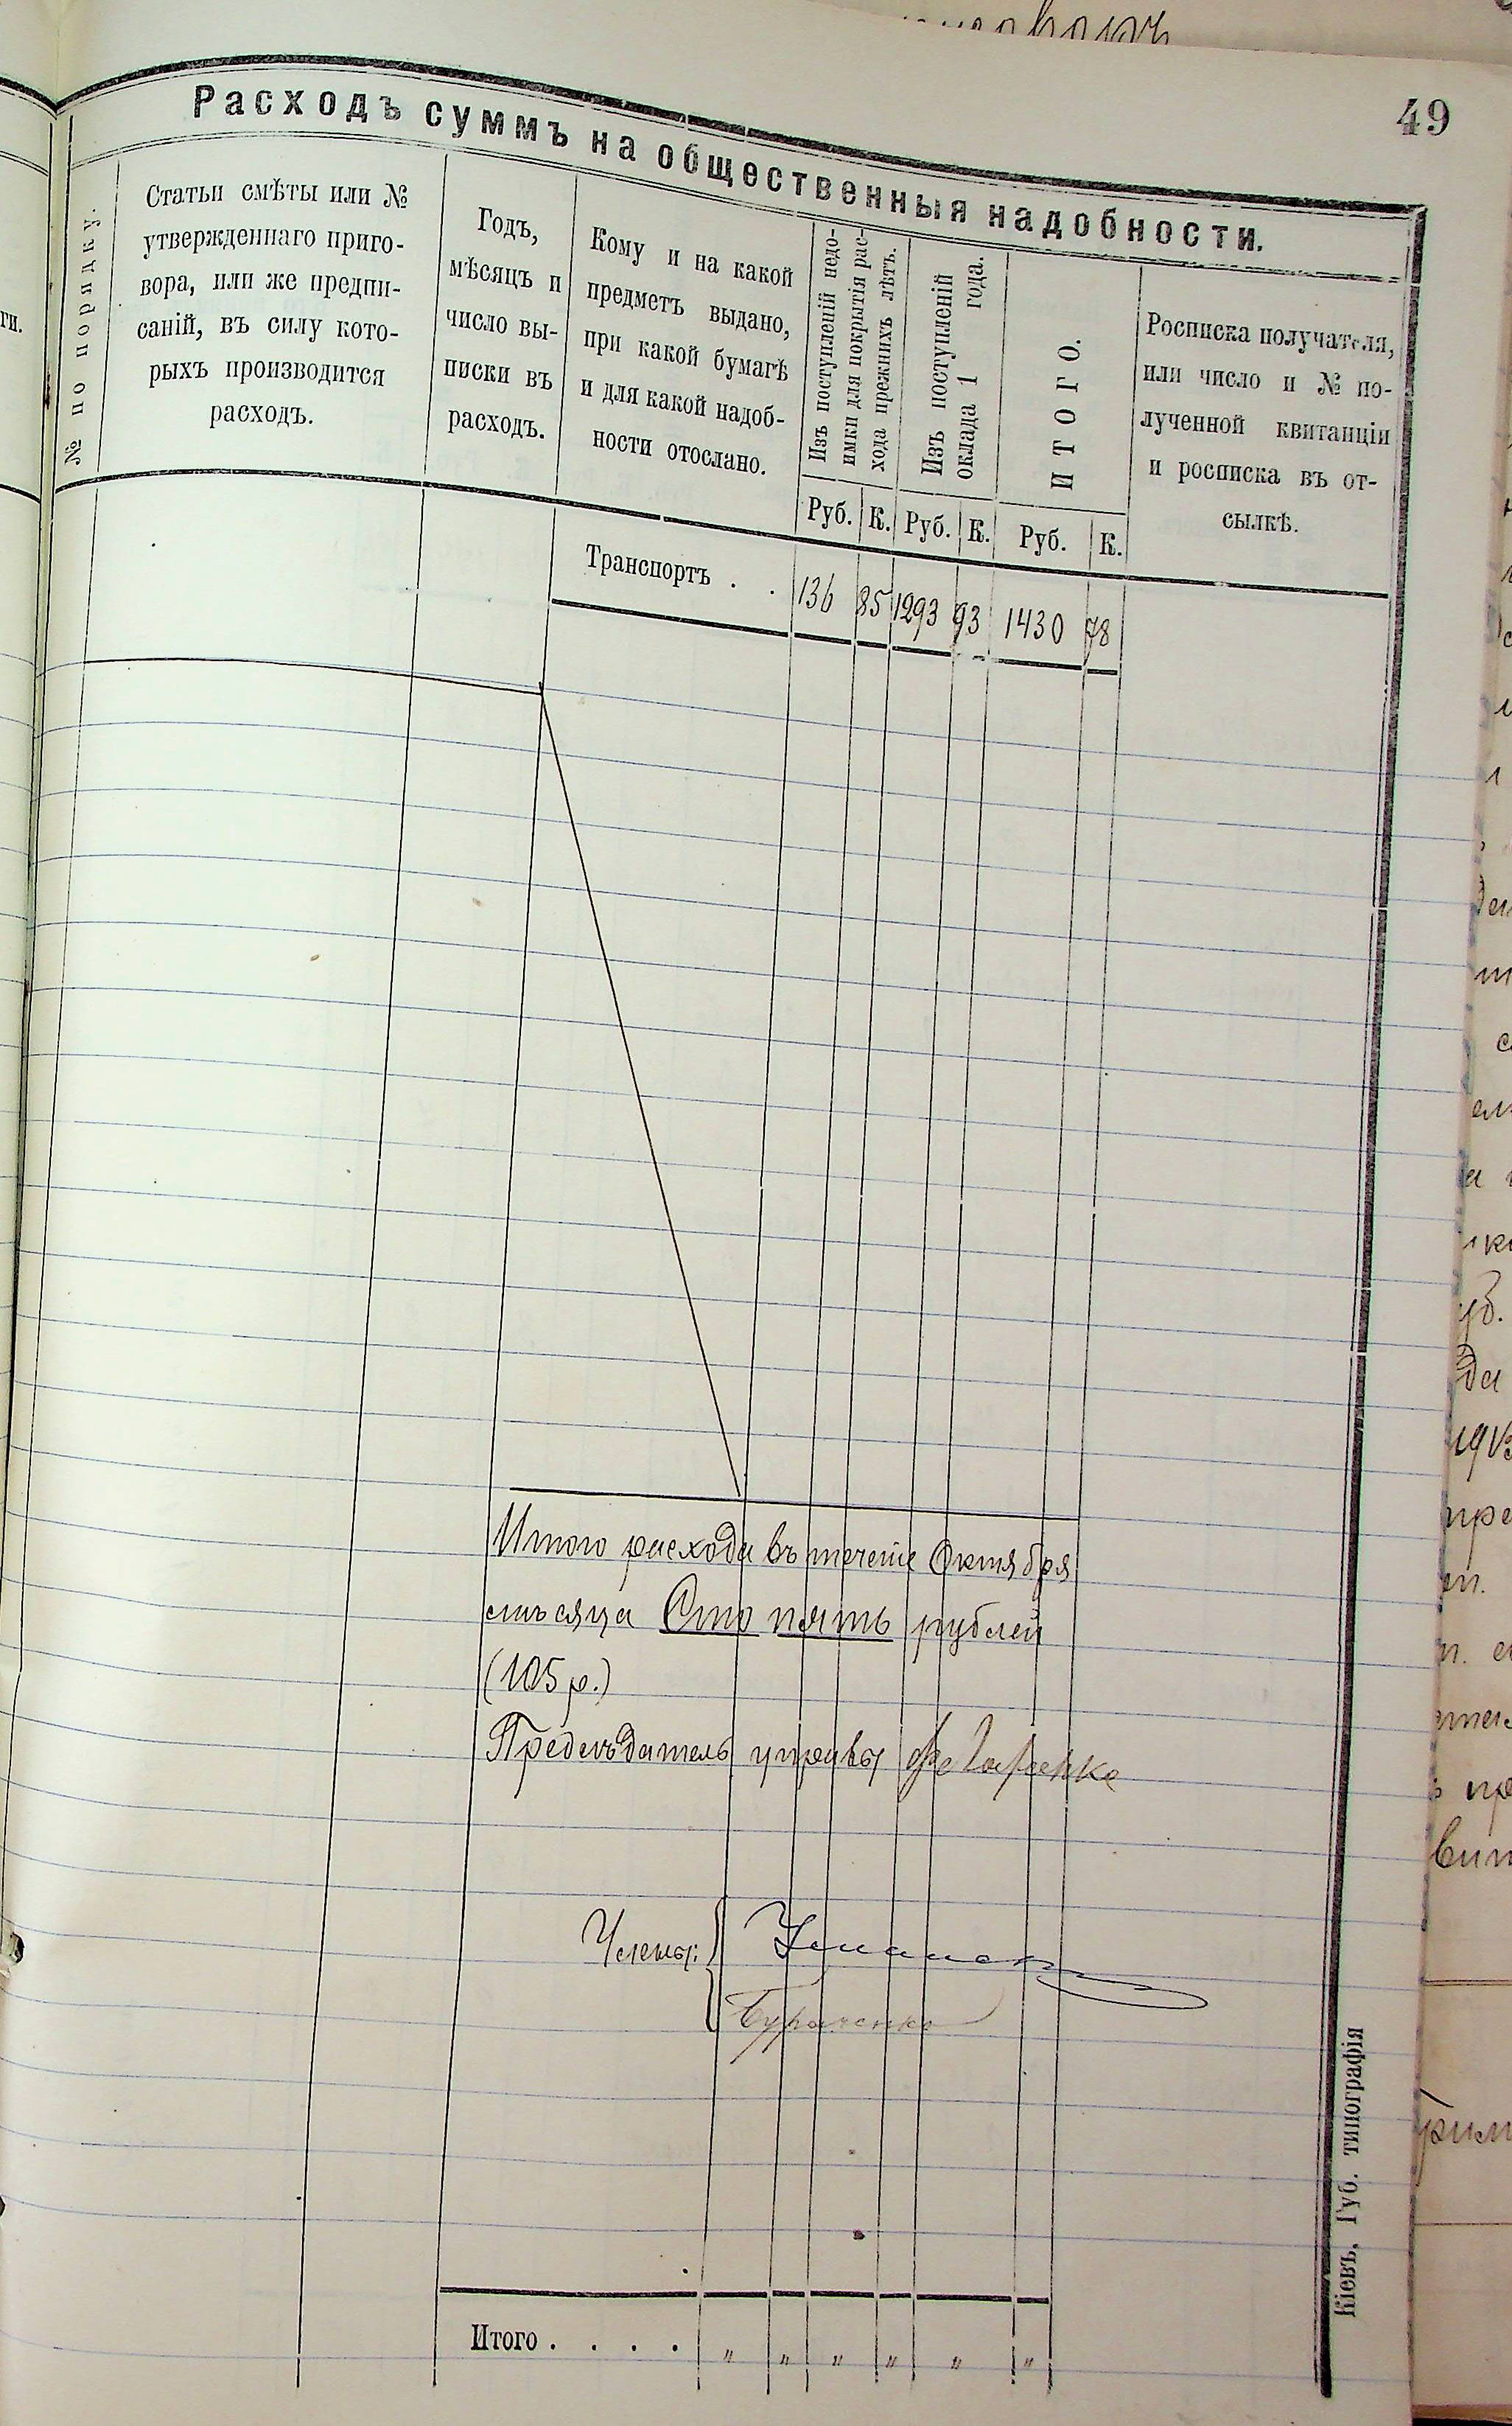 49
Расходъ суммъ на общественныя надобности.
№ по порядку.
Статьи смѣты или №
утвержденнаго приго-
вора, или же предпи-
саній, въ силу кото-
рыхъ производится
расходъ.
Годъ,
мѣсяцъ и
число вы-
писки въ
расходъ.
Кому и на какой
предметъ выдано,
при какой бумагѣ
и для какой надоб-
ности отослано.
Изъ поступленій недо-
имки для покрытія рас-
хода прежнихъ лѣтъ.
Изъ поступленій
оклада 1 года.
ИТОГО.
Росписка получателя,
или число и № по-
лученной квитанціи
и росписка въ от-
сылкѣ.
Руб. К. Руб. К. Руб. К.
Транспортъ . . 136 85 1293 93 1430 78
Итого расхода въ течете Октября
мѣсяца Сто пять рублей
(105 р.)
Предсѣдатель управы
Члены:
Итого . . . . „ „ „ „ „ „
Кіевъ, Губ. типографія